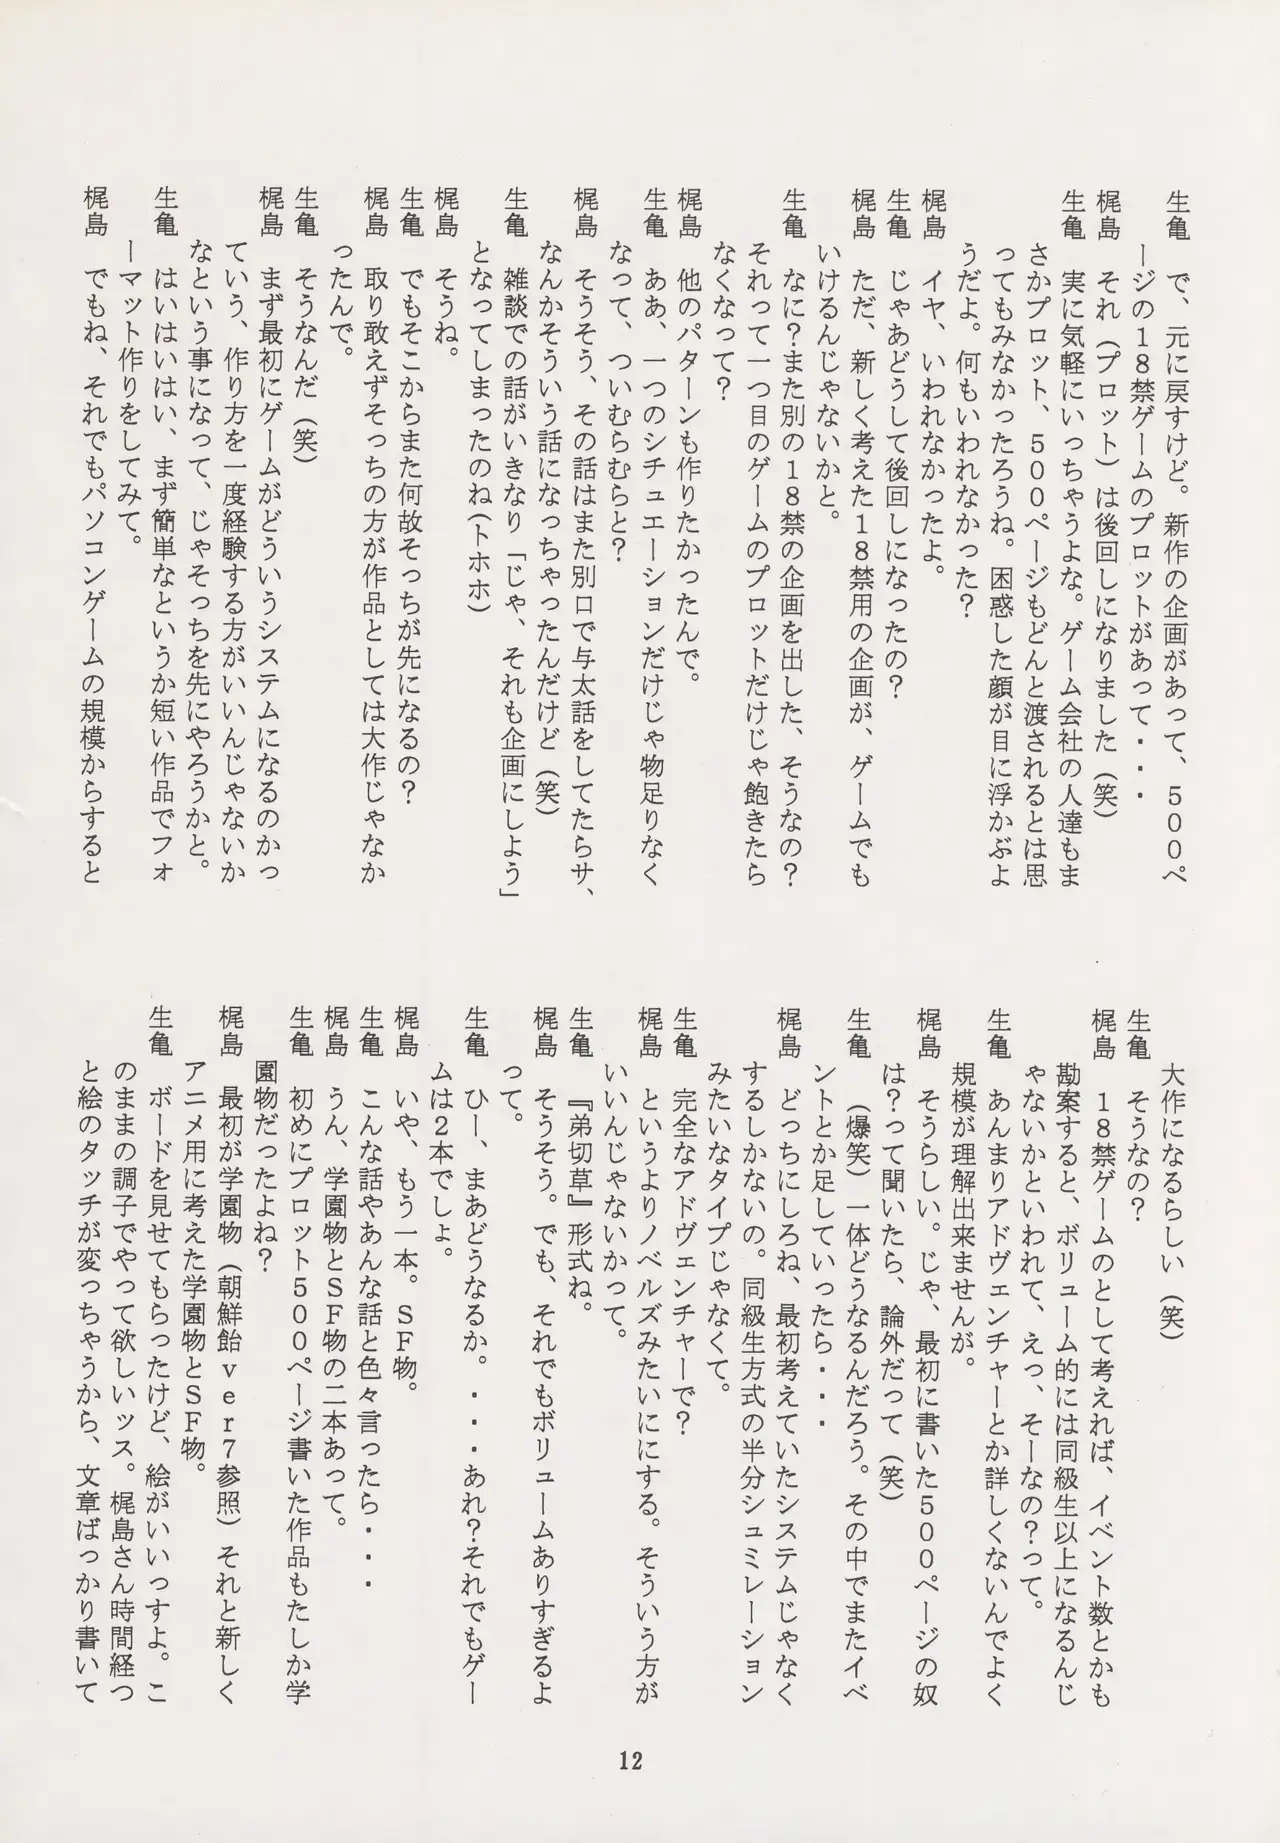 生亀　で、元に戻すけど。新作の企画があって、５００ペ
ージの１８禁ゲームのプロットがあって・・・
梶島　それ（プロット）は後回しになりました（笑）
生亀　実に気軽にいっちゃうよな。ゲーム会社の人達もま
さかプロット、５００ページもどんと渡されるとは思
ってもみなかったろうね。困惑した顔が目に浮かぶよ
うだよ。何もいわれなかった？
梶島　イヤ、いわれなかったよ。
生亀　じゃあどうして後回しになったの？
梶島　ただ、新しく考えた１８禁用の企画が、ゲームでも
いけるんじゃないかと。
生亀　なに？また別の１８禁の企画を出した、そうなの？
それって一つ目のゲームのプロットだけじゃ飽きたら
なくなって？
梶島　他のパターンも作りたかったんで。
生亀　ああ、一つのシチュエーションだけじゃ物足りなく
なって、ついむらむらと？
梶島　そうそう、その話はまた別口で与太話をしてたらサ、
なんかそういう話になっちゃったんだけど（笑）
生亀　雑談での話がいきなり「じゃ、それも企画にしよう」
となってしまったのね（トホホ）
梶島　そうね。
生亀　でもそこからまた何故そっちが先になるの？
梶島　取り敢えずそっちの方が作品としては大作じゃなか
ったんで。
生亀　そうなんだ（笑）
梶島　まず最初にゲームがどういうシステムになるのかっ
ていう、作り方を一度経験する方がいいんじゃないか
なという事になって、じゃそっちを先にやろうかと。
生亀　はいはいはい、まず簡単なというか短い作品でフォ
ーマット作りをしてみて。
梶島　でもね、それでもパソコンゲームの規模からすると
大作になるらしい（笑）
生亀　そうなの？
梶島　１８禁ゲームのとして考えれば、イベント数とかも
勘案すると、ボリューム的には同級生以上になるんじ
ゃないかといわれて、えっ、そーなの？って。
生亀　あんまりアドヴェンチャーとか詳しくないんでよく
規模が理解出来ませんが。
梶島　そうらしい。じゃ、最初に書いた５００ページの奴
は？って聞いたら、論外だって（笑）
生亀　（爆笑）一体どうなるんだろう。その中でまたイベ
ントとか足していったら・・・
梶島　どっちにしろね、最初考えていたシステムじゃなく
するしかないの。同級生方式の半分シュミレーション
みたいなタイプじゃなくて。
生亀　完全なアドヴェンチャーで？
梶島　というよりノベルズみたいににする。そういう方が
いいんじゃないかって。
生亀　『弟切草』形式ね。
梶島　そうそう。でも、それでもボリュームありすぎるよ
って。
生亀　ひー、まあどうなるか。・・・あれ？それでもゲー
ムは２本でしょ。
梶島　いや、もう一本。ＳＦ物。
生亀　こんな話やあんな話と色々言ったら・・・
梶島　うん、学園物とＳＦ物の二本あって。
生亀　初めにプロット５００ページ書いた作品もたしか学
園物だったよね？
梶島　最初が学園物（朝鮮飴ｖｅｒ７参照）それと新しく
アニメ用に考えた学園物とＳＦ物。
生亀　ボードを見せてもらったけど、絵がいいっすよ。こ
のままの調子でやって欲しいッス。梶島さん時間経つ
と絵のタッチが変っちゃうから、文章ばっかり書いて
12